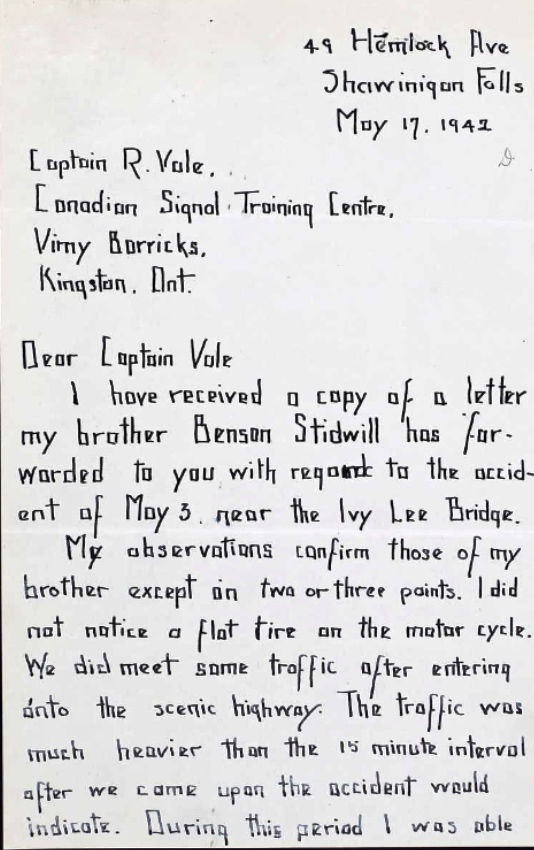 49 Hemlock Ave
Shawinigan Falls
May 17. 1942
Captain R. Vale,
Canadian Signal Training Centre,
Vimy Barricks,
Kingston, Ont.
Dear Captain Vale
I have received a copy of a letter
my brother Benson Stidwill has for-
warded to you with regard to the accid-
ent of May 3, near the Ivy Lee Bridge.
My observations confirm those of my
brother except on two or three points. I did
not notice a flat tire on the motor cycle.
We did meet some traffic after entering
onto the scenic highway. The traffic was
much heavier than the 15 minute interval
after we came upon the accident would
indicate. During this period I was able